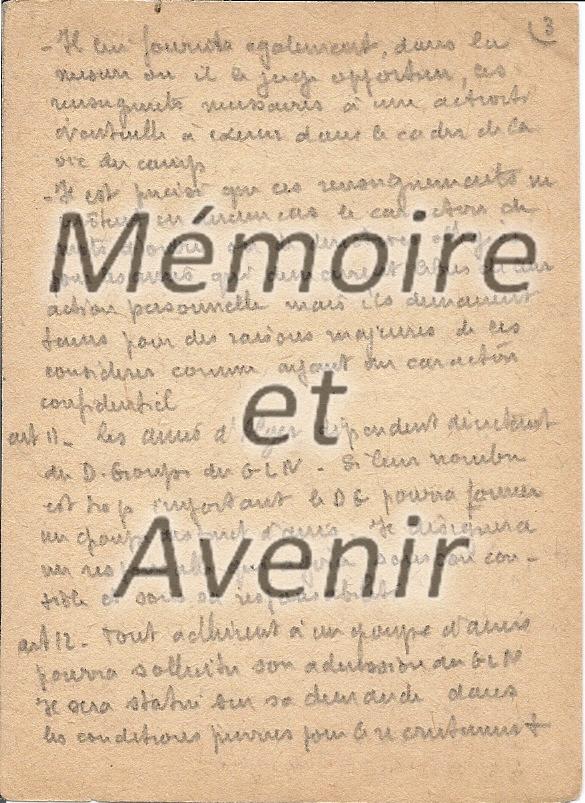 3
- Il lui fournira également, dans la
mesure où il le juge opportun, les
renseignements nécessaires à une activité
éventuelle à exercer dans le cadre de la
vie du camp
- Il est précisé que ces renseignements ne
en aucun cas le caractère de
Mémoire
qui demeurent libres de leur
action personnelle mais ils demeurent
tenus pour des raisons majeures de les
considérer comme ayant un caractère
confidentiel
et
art 11 - Les amis d' dépendent directement
du D. Groupe du GLN - Si leur nombre
est trop important le DG pourra former
un groupe distinct d'amis. Il désignera
un responsable
Avenir
art 12 - Tout adhérent à un groupe d'amis
pourra solliciter son admission au GLN
Il sera statué sur sa demande dans
les conditions prévues pour le recrutement